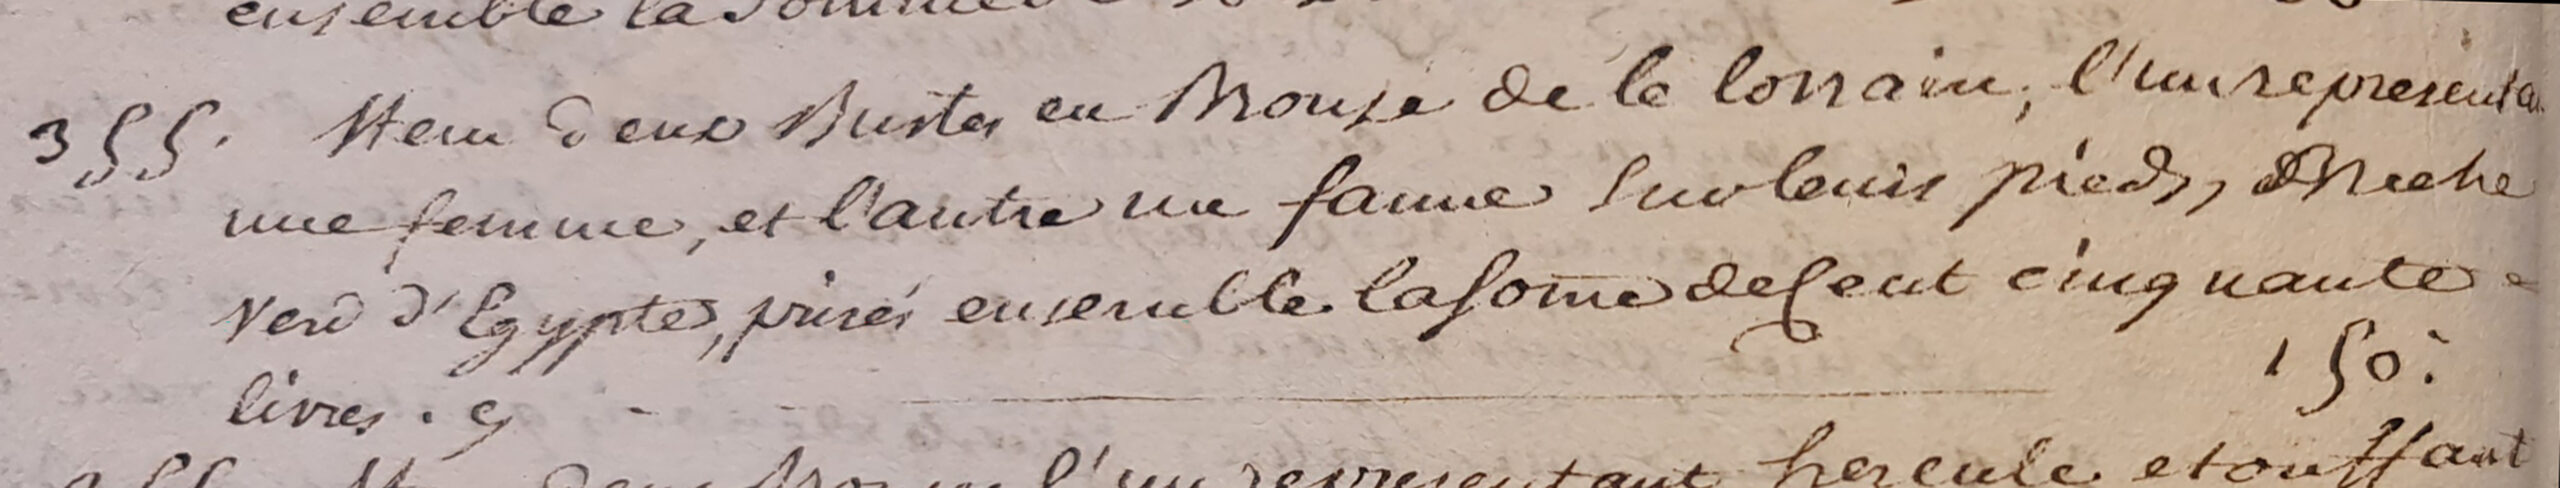 ensemble la somme de
355. Item deux Bustes en Bronze de le lorrain, l'un representan
une femme, et l'autre un faune sur leurs pieds, Breche
Verd d'Egypte, prisés ensemble la some de Cent cinquante
livres. cy - - 150.
Item deux l'un representant hercule etouffant